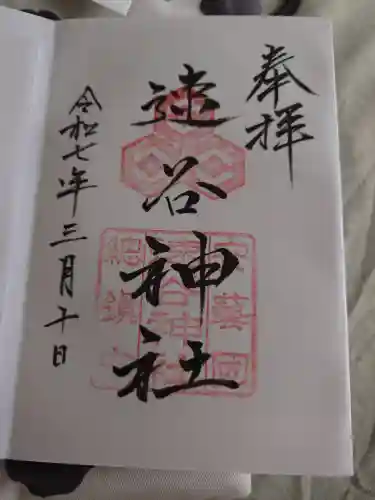 奉拝
速谷神社
安藝國
速谷神社
総鎮守
令和七年三月十日